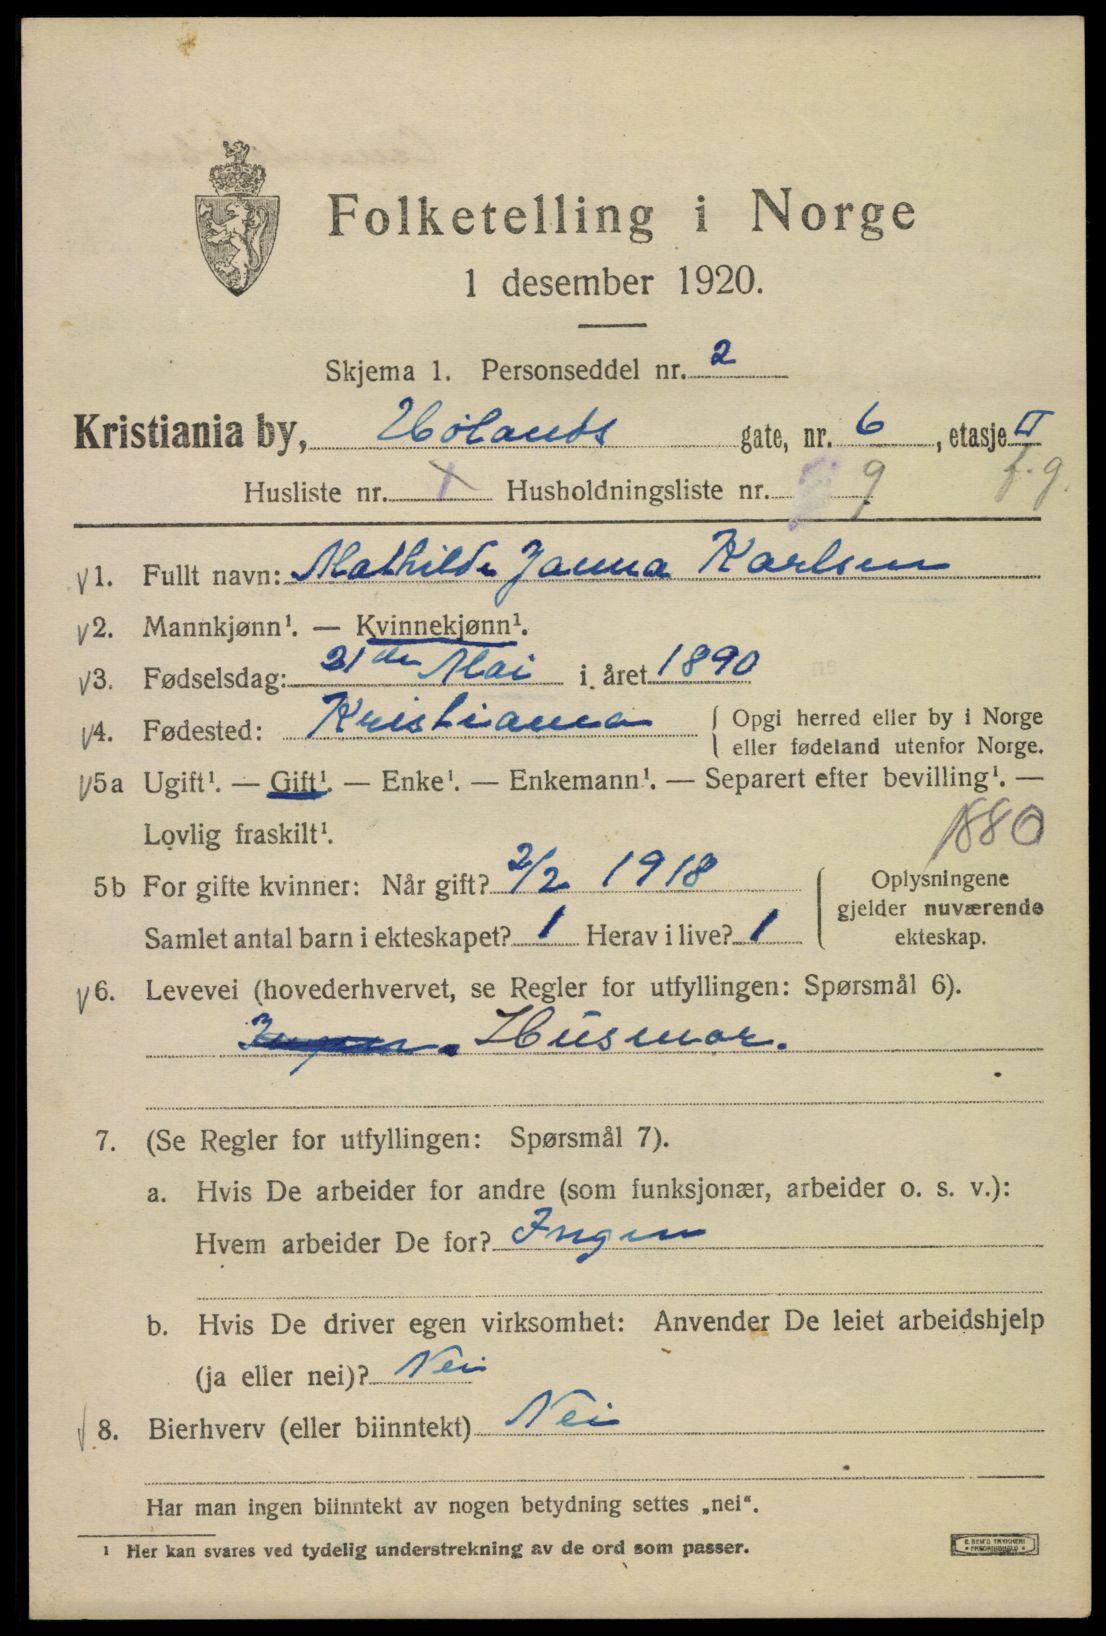 Folketelling i Norge
1 desember 1920.
Skjema 1. Personseddel nr. 2
Kristiania by, Hølands gate, nr. 6, etasje II
Husliste nr. 1 Husholdningsliste nr. 9 f.g.
v1. Fullt navn: Mathilde Janna Karlsen
v2. Mannkjønn¹. — Kvinnekjønn¹.
v3. Fødselsdag: 21de Mai i året 1890
v4. Fødested: Kristiania { Opgi herred eller by i Norge
eller fødeland utenfor Norge.
v5a Ugift¹. — Gift¹. — Enke¹. — Enkemann¹. — Separert efter bevilling¹. —
Lovlig fraskilt¹. 1880
5b For gifte kvinner: Når gift? 2/2 1918 { Oplysningene
gjelder nuværende
ekteskap.
Samlet antal barn i ekteskapet? 1 Herav i live? 1
v6. Levevei (hovederhvervet, se Regler for utfyllingen: Spørsmål 6).
Ingen. Husmor.
7. (Se Regler for utfyllingen: Spørsmål 7).
a. Hvis De arbeider for andre (som funksjonær, arbeider o. s. v.):
Hvem arbeider De for? Ingen
b. Hvis De driver egen virksomhet: Anvender De leiet arbeidshjelp
(ja eller nei)? Nei
v8. Bierhverv (eller biinntekt) Nei
Har man ingen biinntekt av nogen betydning settes „nei“.
¹ Her kan svares ved tydelig understrekning av de ord som passer.
E. SEM'S TRYKKERI
• FREDRIKSHALD •